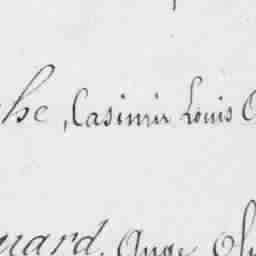 he, Casimir Louis
uard, Ange